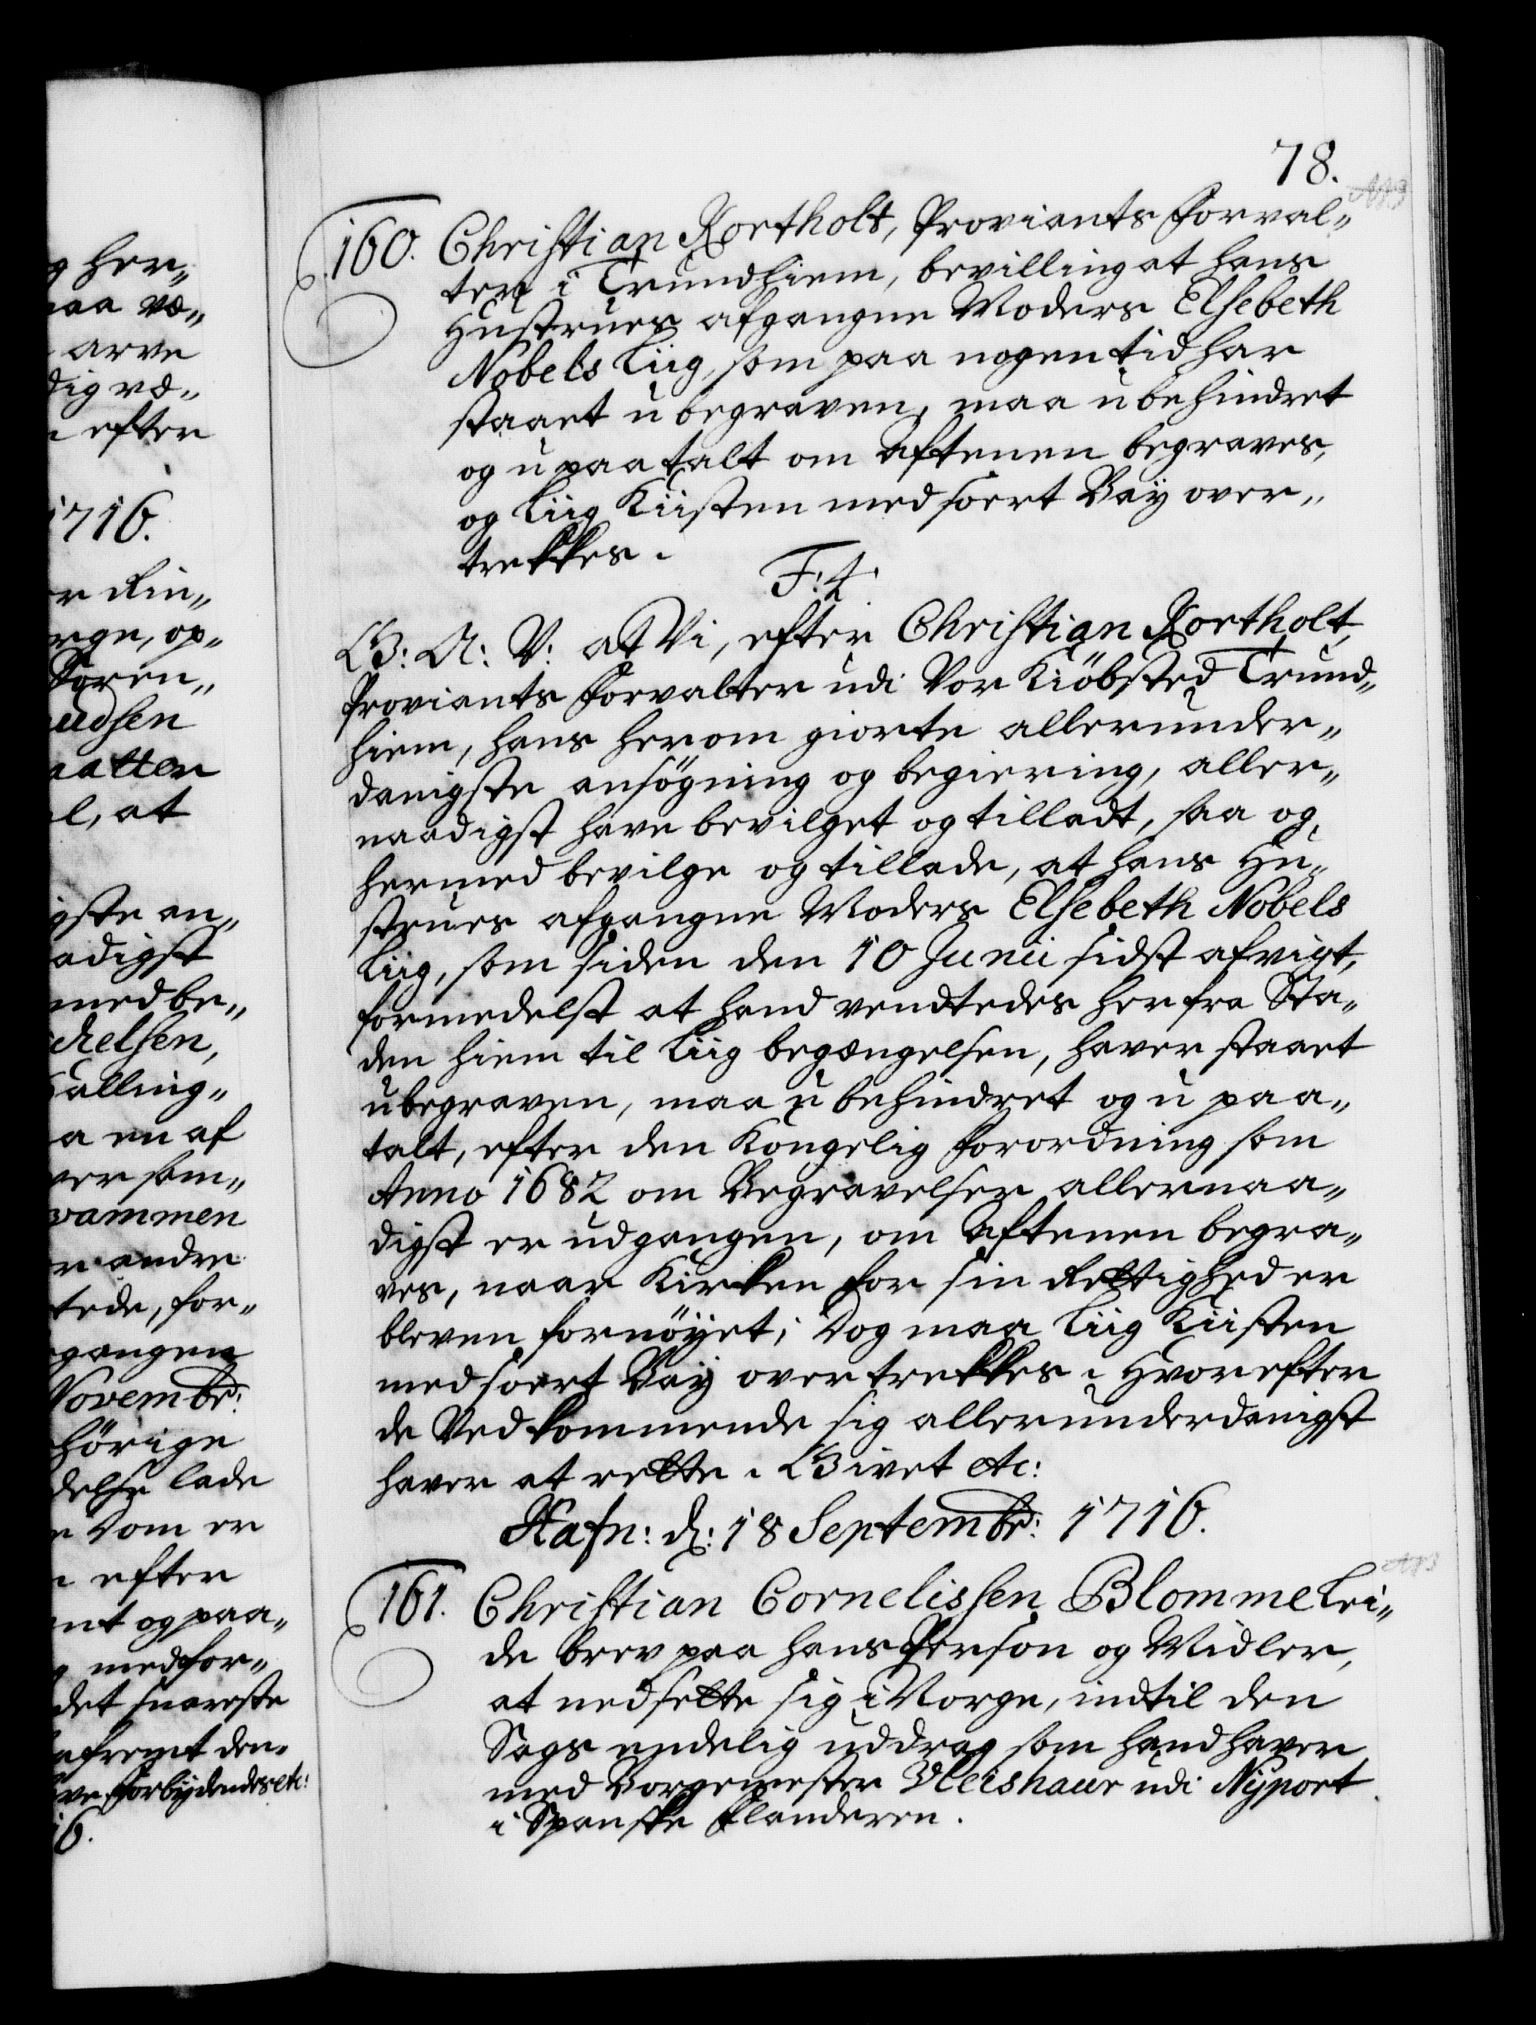 78.
160. Christian Kortholt, Proviants Forval„
ter i Trundhiem, bevilling at hans
Hustrues afgangne Moders Elsebeth
Nobels Liig, som paa nogen tid har
staaet u begraven, maa u behindret
og u paatalt om Aftenen begraves,
og Liig Kiisten med sort Bay over„
trekkes.
F: 4.
G: A: V: at Vi, efter Christian Kortholt,
Proviants Forvalter udi Vor Kiöbsted Trund„
hiem, hans herom giorte allerunder„
danigste ansögning og begiering, aller„
naadigst have bevilget og tilladt, saa og
hermed bevilge og tillade, at hans Hu„
strues afgangne Moders Elsebeth Nobels
Liig, som siden den 10 Junii sidst afvigt,
formedelst at hand ventedes her fra Sta„
den hiem til Liig begængelsen, haver staaet
ubegraven, maa u behindret og u paa„
talt, efter den Kongelig Forordning som
Anno 1682 om Begravelser allernaa„
digst er udgangen, om Aftenen begra„
ves, naar Kirken for sin Rettighed er
bleven fornöyet; Dog maa Liig Kiisten
med sort Bay overtrekkes. Hvorefter
de Vedkommende sig allerunderdanigst
haver at rette. Givet etc:
Hafn: d: 18 Septembr: 1716.
161. Christian Cornelissen Blomme Lei„
de brev paa hans Person og Midler,
at nedsette sig i Norge, indtil den
Sags endelig uddrag som hand haver
med Borgemester Vleishaur udi Nyport
i Spanske Flanderen.